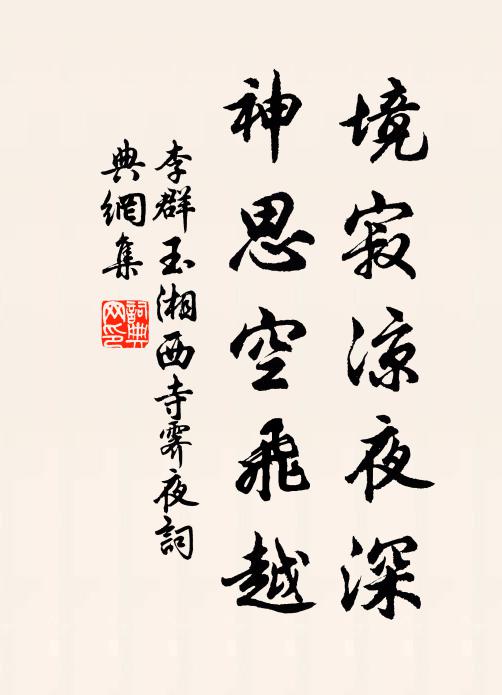 境寂涼夜深
神思空飛越
李群玉湘西寺霽夜詞
典網集
詞典
網印